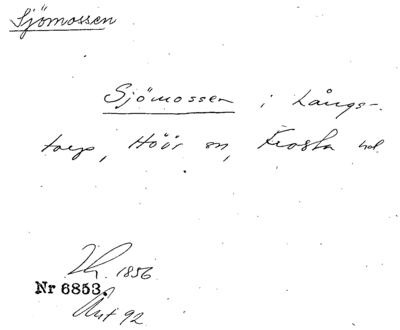 Sjömossen
Sjömossen i Långs-
torp, Höör sn, Frosta hd
1856
Nr 6853.
92